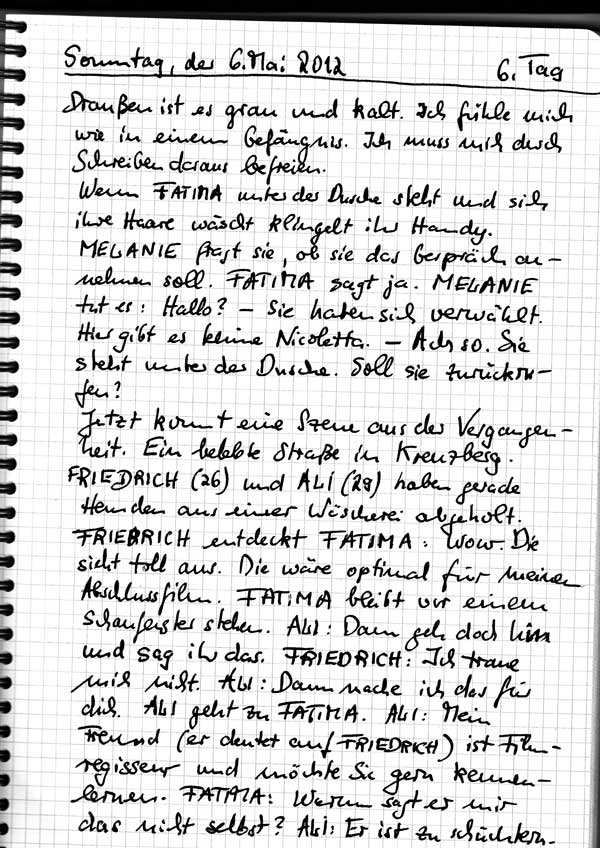 Sonntag, der 6. Mai 2012
6. Tag
Draußen ist es grau und kalt. Ich fühle mich
wie in einem Gefängnis. Ich muss mich durch
Schreiben daraus befreien.
Wenn FATIMA unter der Dusche steht und sich
ihre Haare wäscht klingelt ihr Handy.
MELANIE fragt sie, ob sie das Gespräch an-
nehmen soll. FATIMA sagt ja. MELANIE
tut es: Hallo? – Sie haben sich verwählt.
Hier gibt es keine Nicoletta. – Ach so. Sie
steht unter der Dusche. Soll sie zurückru-
fen?
Jetzt kommt eine Szene aus der Vergangen-
heit. Ein belebte Straße in Kreuzberg.
FRIEDRICH (26) und ALI (28) haben gerade
Hemden aus einer Wäscherei abgeholt.
FRIEDRICH entdeckt FATIMA: Wow. Die
sieht toll aus. Die wäre optimal für meinen
Abschlussfilm. FATIMA bleibt vor einem
Schaufenster stehen. ALI: Dann geh doch hin
und sag ihr das. FRIEDRICH: Ich traue
mich nicht. ALI: Dann mache ich das für
dich. ALI geht zu FATIMA. ALI: Mein
Freund (er deutet auf FRIEDRICH) ist Film-
regisseur und möchte Sie gern kennen-
lernen. FATIMA: Warum sagt er mir
das nicht selbst? ALI: Er ist zu schüchtern.